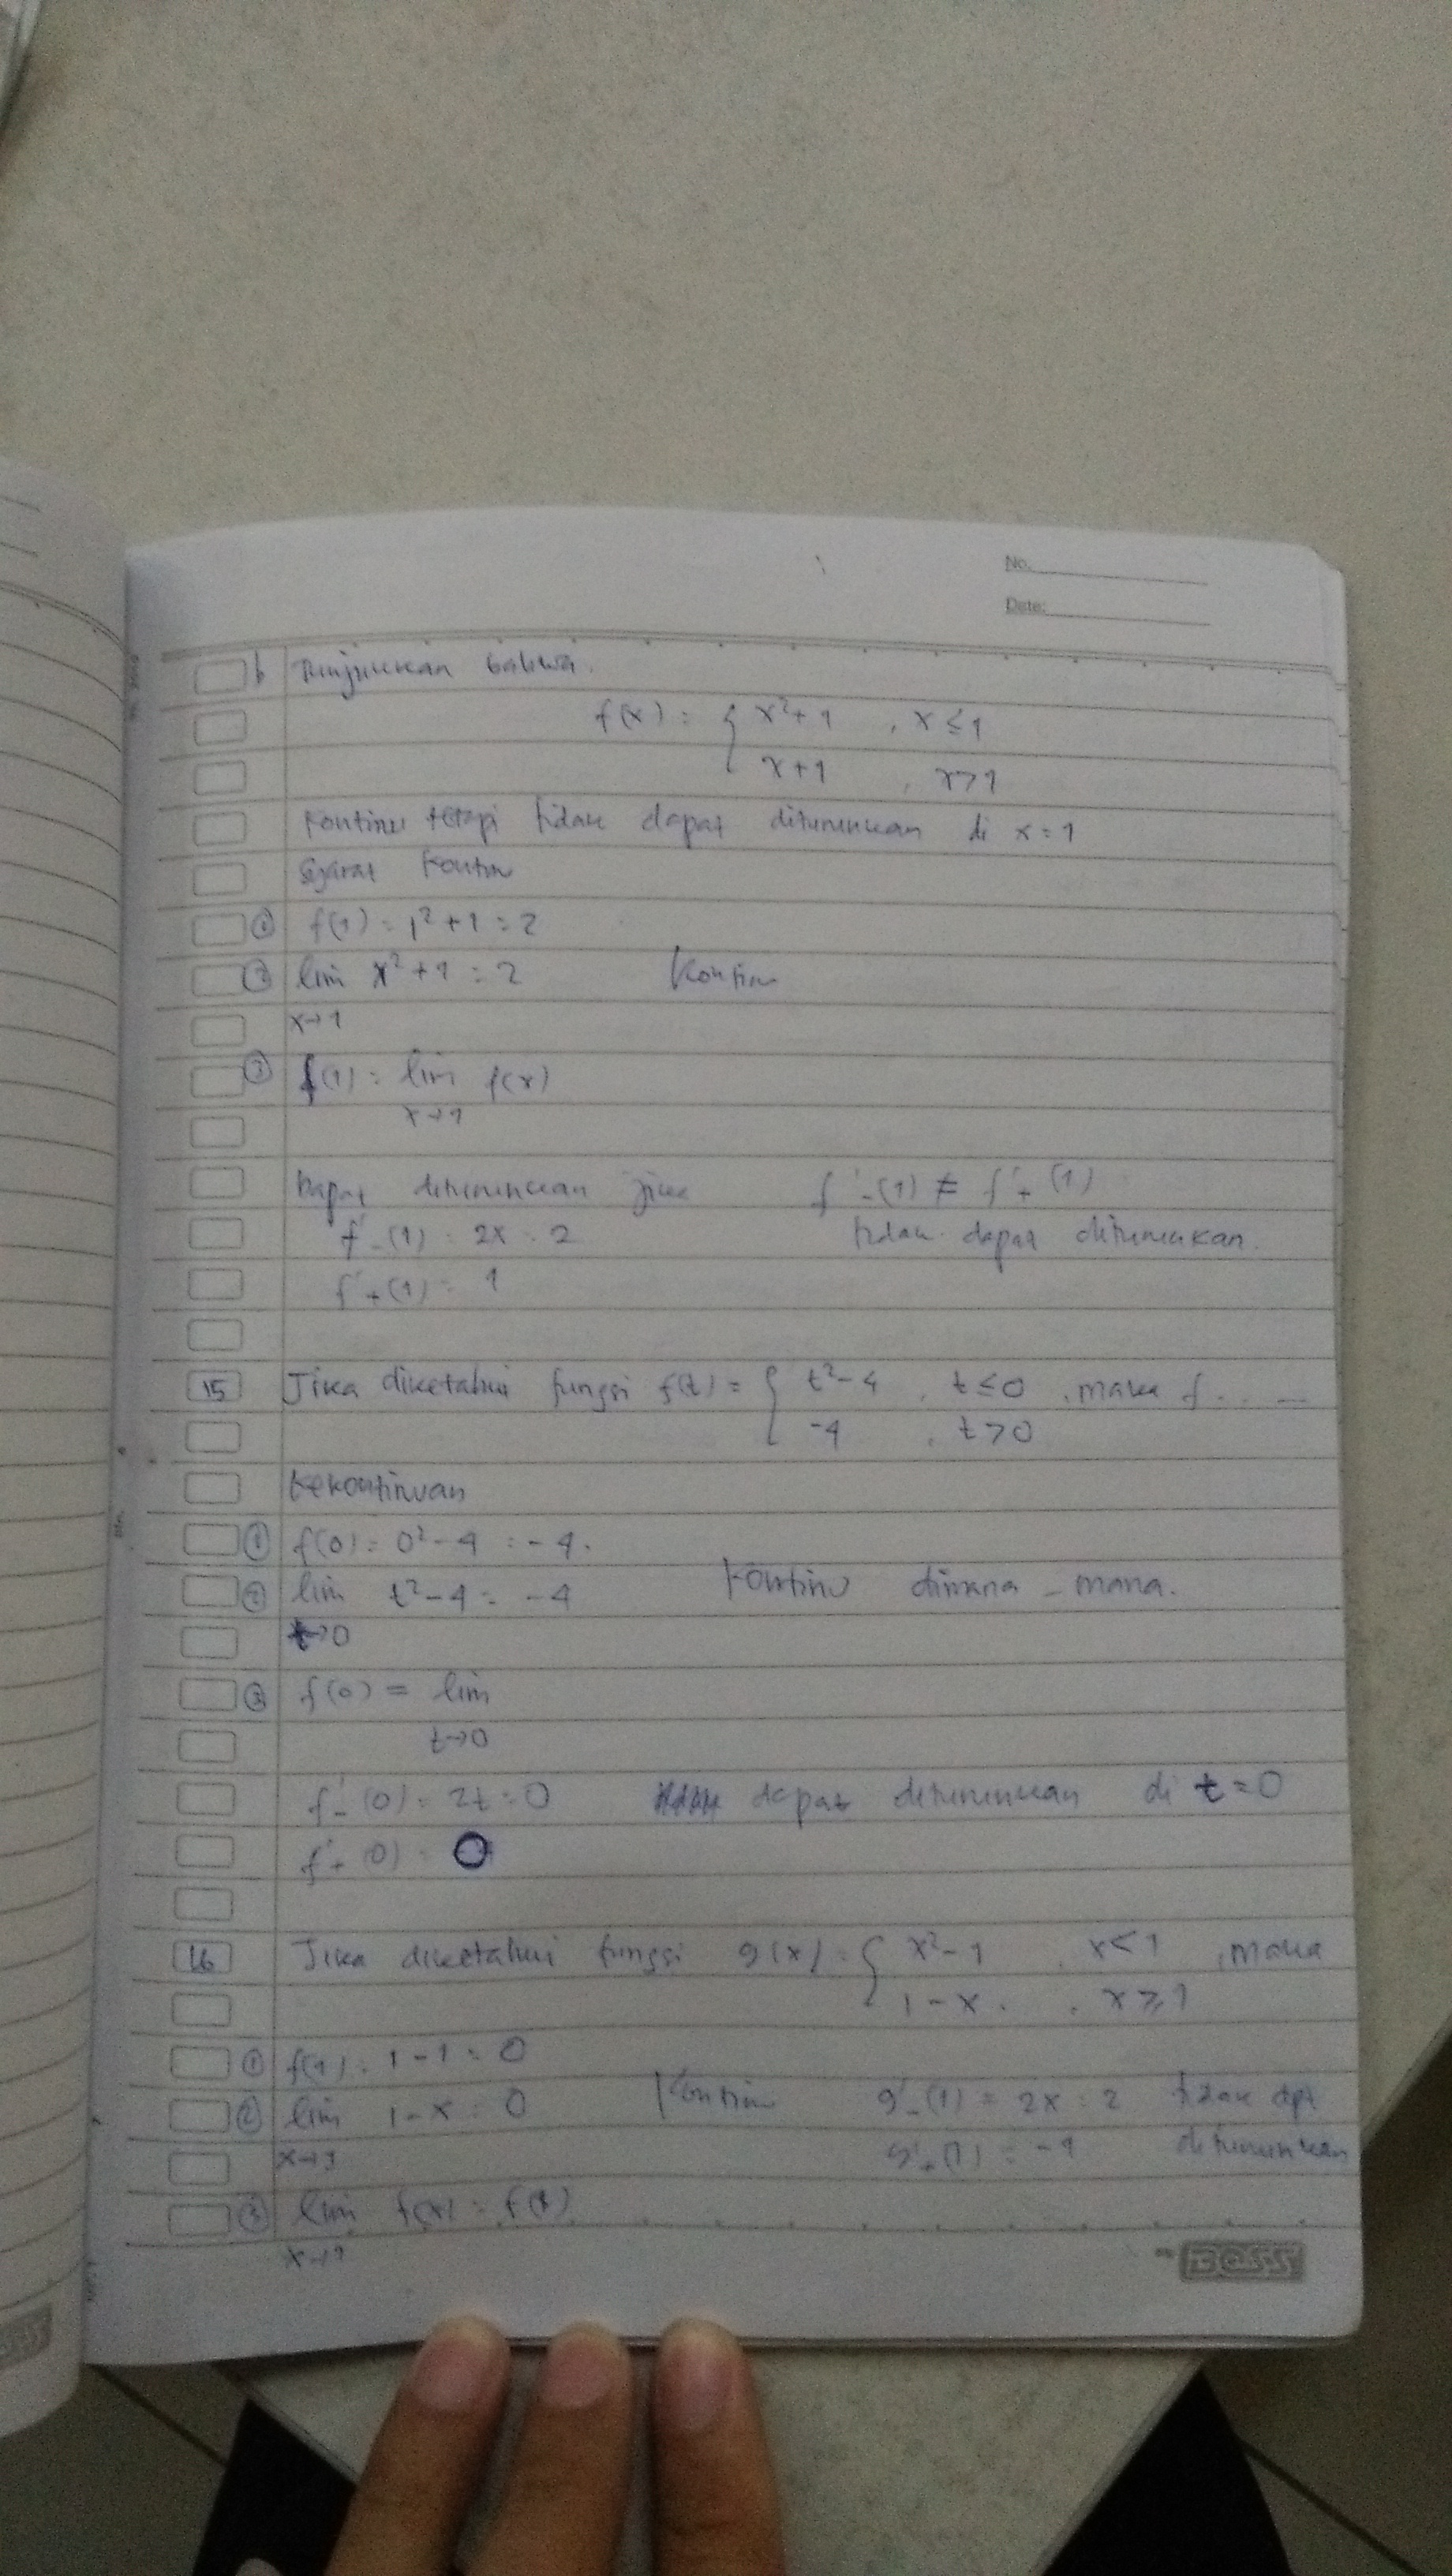 No.
Date:
b Tunjukkan bahwa.
f(x) = { x²+1 , x ≤ 1
x+1 , x>1
Kontinu tetapi tidak dapat diturunkan di x = 1
Syarat kontinu
① f(1) = 1²+1 = 2
② lim x²+1 = 2 Kontinu
x→1
③ f(1) = lim f(x)
x→1
Dapat diturunkan jika f'-(1) ≠ f'+(1)
f'-(1) = 2x = 2 tidak dapat diturunkan.
f'+(1) = 1
15 Jika diketahui fungsi f(t) = { t²-4 , t ≤ 0 , maka f . . . .
-4 , t > 0
Kekontinuan
① f(0) = 0²-4 = -4.
② lim t²-4 = -4 Kontinu dimana-mana.
t→0
③ f(0) = lim
t→0
f'-(0) = 2t = 0 dapat diturunkan di t = 0
f'+(0) = 0
16 Jika diketahui fungsi g(x) = { x²-1 , x<1 , maka
1-x . , x ≥ 1
① f(1) = 1-1 = 0
② lim 1-x = 0 Kontinu g'-(1) = 2x = 2 tidak dpt
x→1 g'+(1) = -1 diturunkan
③ lim f(x) = f(1)
x→1
BOSS